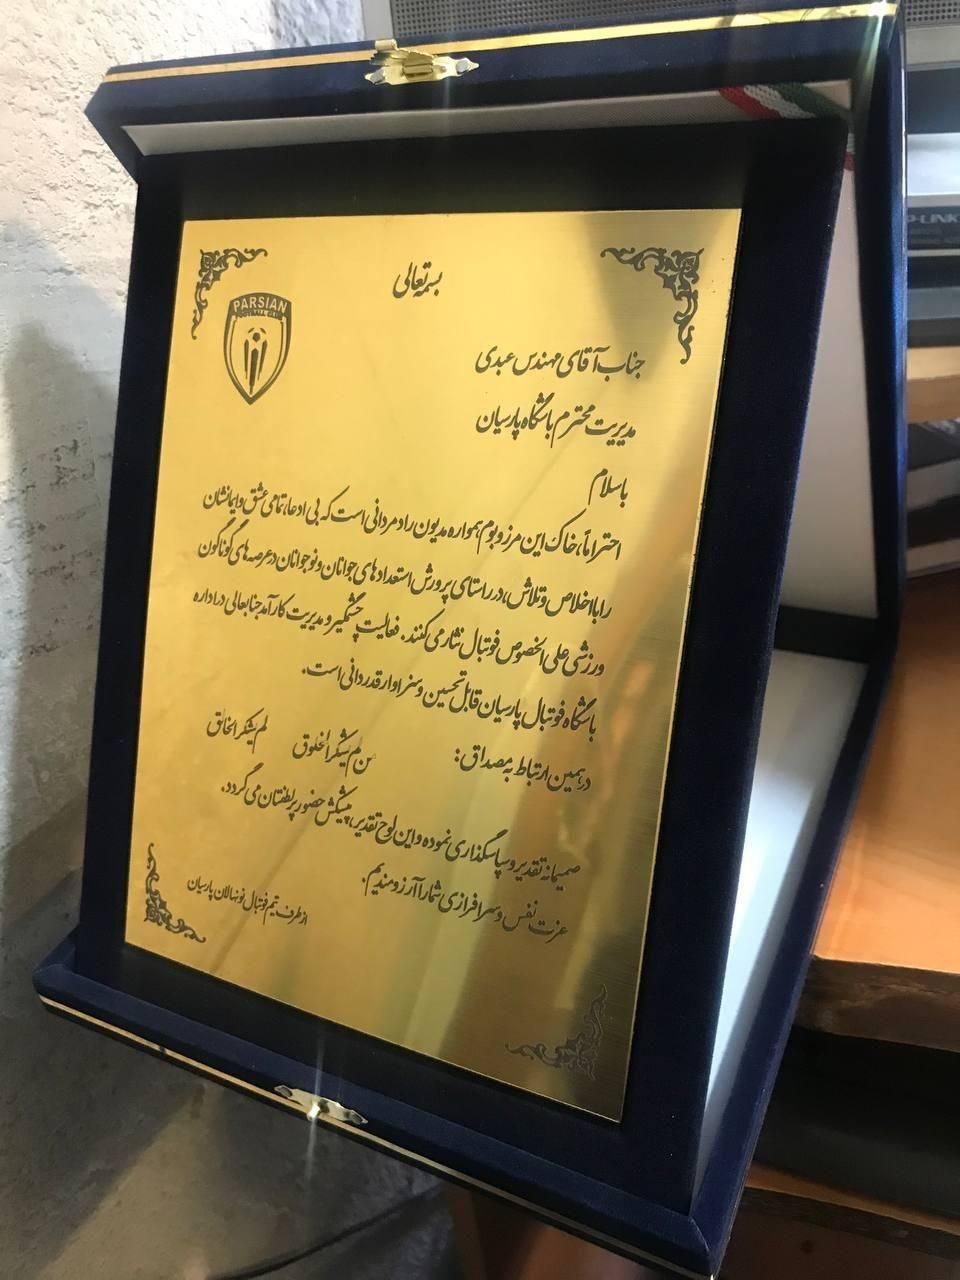 بسمه تعالی
PARSIAN
FOOTBALL CLUB
جناب آقای مهندس عبدی
مدیریت محترم باشگاه پارسیان
باسلام
احتراماً، خاک این مرزوبوم، همواره مدیون رادمردانی است که بی ادعا، تمامی عشق و ایمانشان
را با اخلاص و تلاش، در راستای پرورش استعدادهای جوانان و نوجوانان در عرصه های گوناگون
ورزشی علی الخصوص فوتبال نثار می کنند. فعالیت چشمگیر و مدیریت کارآمد جنابعالی در اداره
باشگاه فوتبال پارسیان قابل تحسین و سزاوار قدردانی است.
در همین ارتباط به مصداق: من لم یشکر المخلوق لم یشکر الخالق
صمیمانه تقدیر و سپاسگذاری نموده و این لوح تقدیر، پیشکش حضور پرلطفتان می گردد.
عزت نفس و سرافرازی شما را آرزومندیم.
از طرف تیم فوتبال نونهالان پارسیان
P-LINK